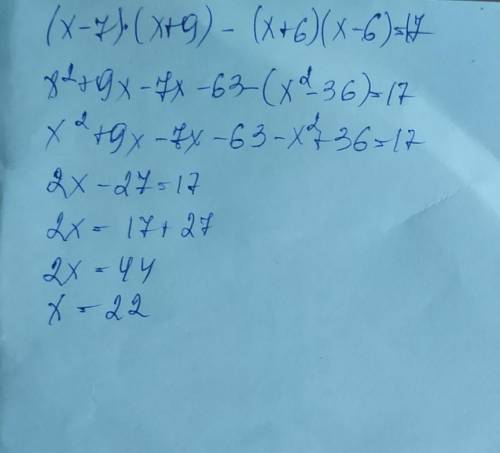 (x-7)·(x+9) - (x+6)(x-6)=17
x²+9x-7x-63-(x²-36)=17
x²+9x-7x-63-x²+36=17
2x-27=17
2x=17+27
2x=44
x=22